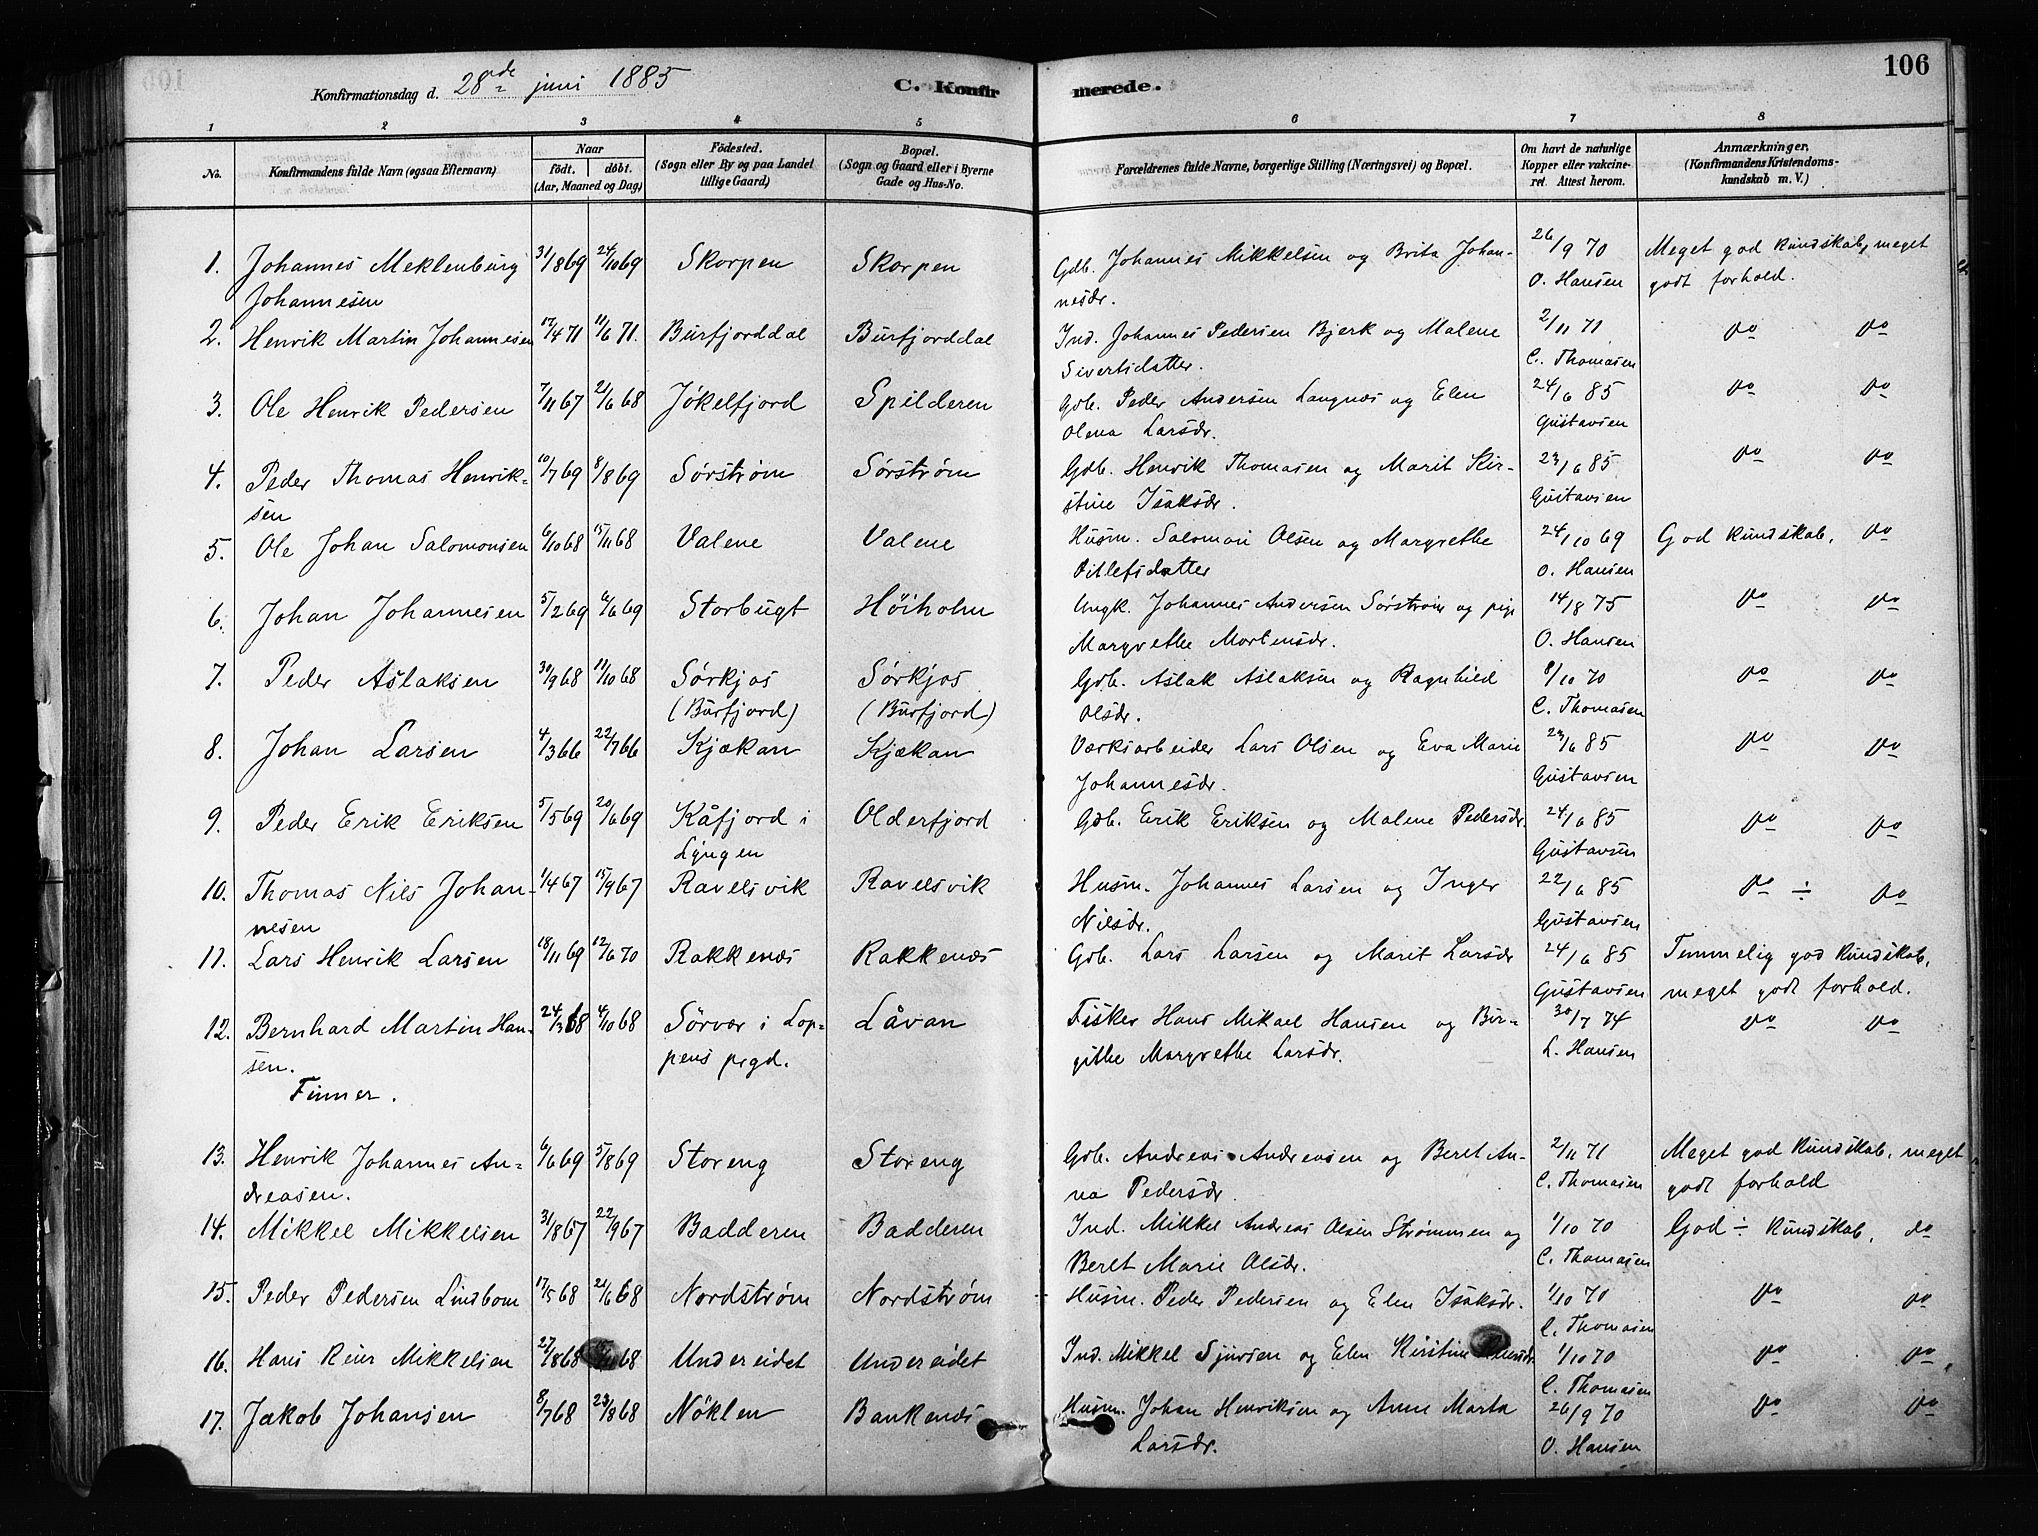 106
Konfirmationsdag d. 28de juni 1885
C. Konfir merede.
1 2 3 4 5 6 7 8
No. Konfirmandens fulde Navn (ogsaa Efternavn) Naar födt. döbt. (Aar, Maaned og Dag) Födested. (Sogn eller By og paa Landet tillige Gaard) Bopæl. (Sogn og Gaard eller i Byerne Gade og Hus-No. Forældrenes fulde Navne, borgerlige Stilling (Næringsvei) og Bopæl. Om havt de naturlige Kopper eller vakcineret. Attest herom. Anmærkninger. (Konfirmandens Kristendomskundskab m. V.)
1. Johannes Meklenburg 31/8 69 24/10 69 Skorpen Skorpen Gdb. Johannes Mikkelsen og Brita Johan- 26/9 70 Meget god kundskab, meget
Johannesen nesdr. O. Hansen godt forhold.
2. Henrik Martin Johannesen 17/4 71 11/6 71. Burfjorddal Burfjorddal Ind. Johannes Pedersen Bjerk og Malene 2/11 71 do do
Sivertsdatter. C. Thomasen
3. Ole Henrik Pedersen 7/11 67 21/6 68 Jökelfjord Spilderen Gdb. Peder Andersen Langnæs og Elen 24/6 85 do do
Olena Larsdr. Gustavsen
4. Peder Thomas Henrik- 10/7 69 8/8 69 Sørstrøm Sørstrøm Gdb. Henrik Thomasen og Marit Kir- 23/6 85 do do
sen stine Isaksdr. Gustavsen
5. Ole Johan Salomonsen 6/10 68 15/11 68 Valene Valene Husm. Salomon Olsen og Margrethe 24/10 69 God kundskab, do
Ditlefsdatter O. Hansen
6. Johan Johannesen 5/2 69 6/6 69 Storbugt Höiholm Ungk. Johannes Andersen Sørstrøm og pige 14/8 75 do do
Margrethe Mortensdr. O. Hansen
7. Peder Aslaksen 30/9 68 11/10 68 Sørkjos Sørkjos Gdb. Aslak Aslaksen og Ragnhild 8/10 70 do do
(Burfjord) (Burfjord) Olsdr. C. Thomasen
8. Johan Larsen 4/3 66 22/7 66 Kjækan Kjækan Værksarbeider Lars Olsen og Eva Marie 23/6 85 do do
Johannesdr. Gustavsen
9. Peder Erik Eriksen 5/5 69 20/6 69 Kåfjord i Olderfjord Gdb. Erik Eriksen og Malene Pedersdr. 24/6 85 do do
Lyngen Gustavsen
10. Thomas Nils Johan- 1/4 67 15/9 67 Ravelsvik Ravelsvik Husm. Johannes Larsen og Inger 22/6 85 do ÷ do
nesen Nilsdr. Gustavsen
11. Lars Henrik Larsen 18/11 69 12/6 70 Rakkenæs Rakkenæs Gdb. Lars Larsen og Marit Larsdr 24/6 85 Temmelig god kundskab,
Gustavsen meget godt forhold.
12. Bernhard Martin Han- 24/3 68 4/10 68 Sörvær i Lop- Låvan Fisker Hans Mikael Hansen og Bir- 30/7 74 do do
sen. pens prgd. githe Margrethe Larsdr. L. Hansen
Finner.
13. Henrik Johannes An- 6/6 69 5/8 69 Storeng Storeng Gdb. Andreas Andreasen og Beret An- 2/11 71 Meget god kundskab, meget
dreasen. na Pedersdr. C. Thomasen godt forhold
14. Mikkel Mikkelsen 31/8 67 22/9 67 Badderen Badderen Ind. Mikkel Andreas Olsen Strømmen og 1/10 70 God ÷ kundskab, do
Beret Marie Olsdr. C. Thomasen
15. Peder Pedersen Lindbom 17/5 68 21/6 68 Nordstrøm Nordstrøm Husm. Peder Pedersen og Elen Isaksdr. 1/10 70 do do
C. Thomasen
16. Hans Reier Mikkelsen 27/8 68 68 Undereidet Undereidet Ind. Mikkel Sjursen og Elen Kirstine 1/10 70 do do
C. Thomasen
17. Jakob Johansen 8/7 68 23/8 68 Nöklen Bankenæs Husm. Johan Henriksen og Anne Marta 26/9 70 do do
Larsdr. O. Hansen